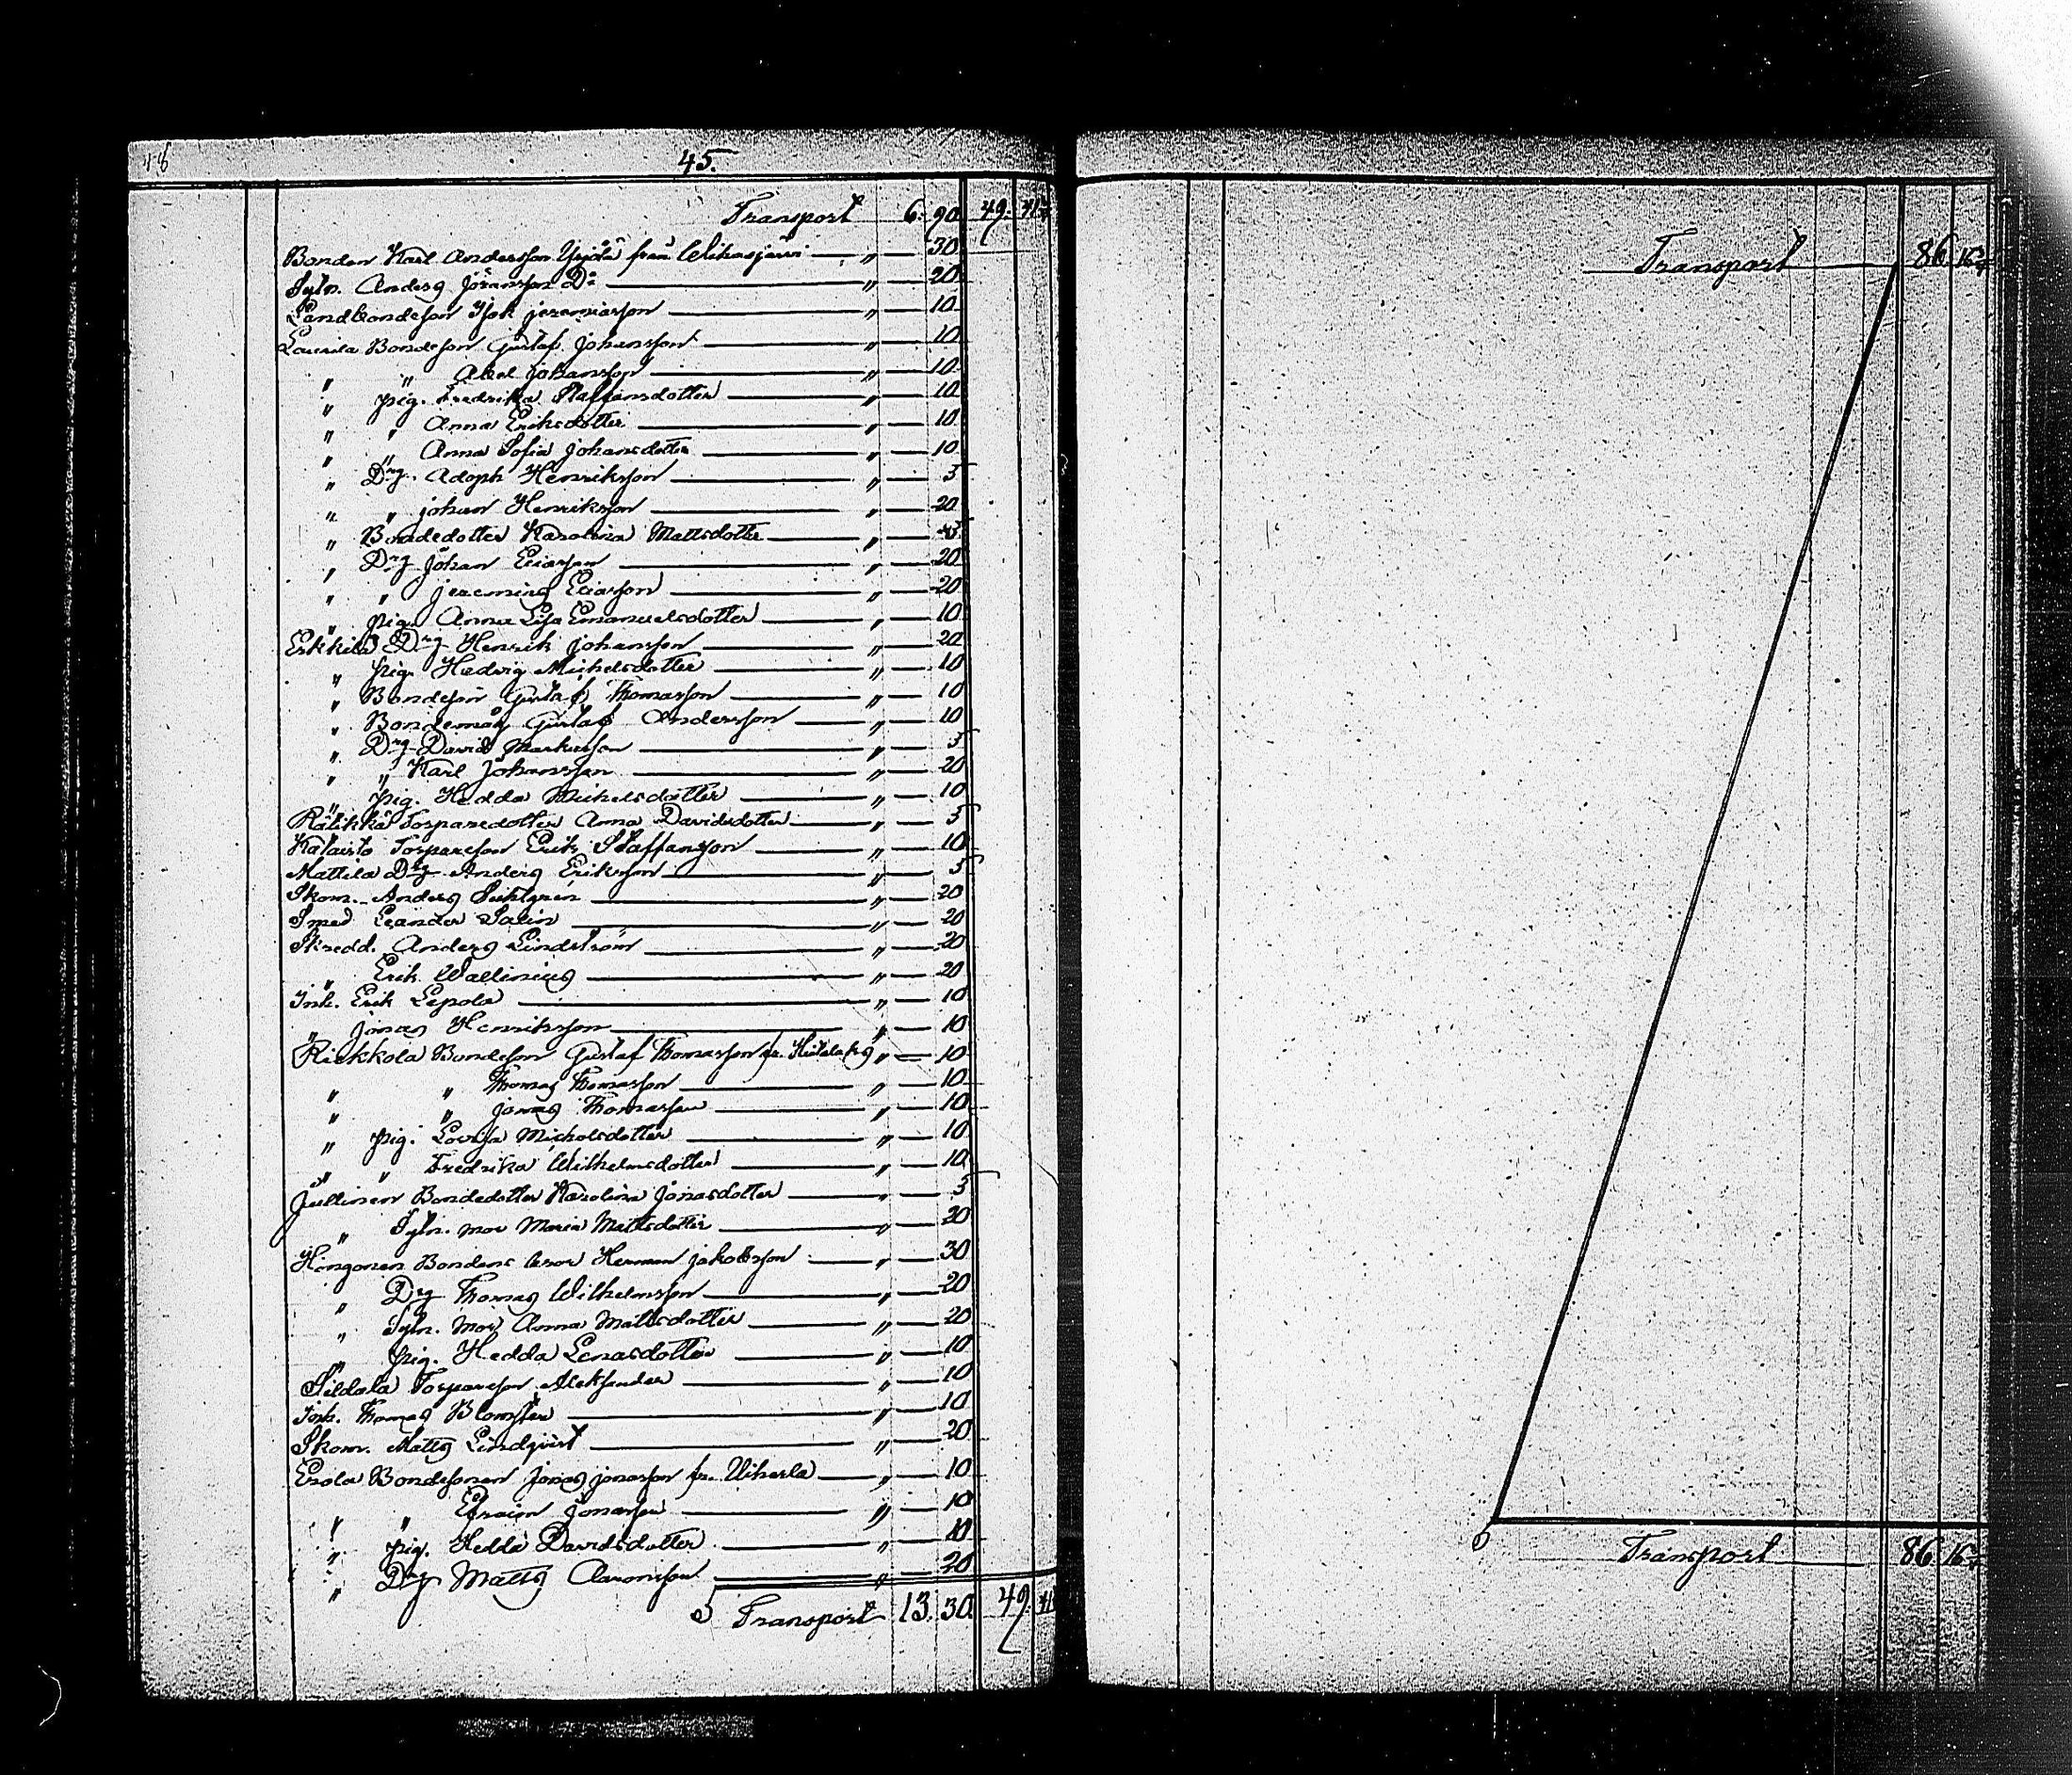 45.
Transport 6. 90 49.
Bonden Karl Andersson Yrjölä från Wihasjärvi — „ — 30
Sytn. Anders Göransson Do — „ — 20
Landbondeson Isak Jeremiasson — „ — 10
Laurila Bondeson Gustaf Johansson — „ — 10
„ „ Abel Johansson — „ — 10
„ pig. Fredrika Staffansdotter — „ — 10
„ „ Anna Eriksdotter — „ — 10
„ „ Anna Sofia Johansdotter — „ — 10
„ Drg. Adoph Henriksson — „ — 5
„ „ Johan Henriksson — „ — 20
„ Bondedotter Karolina Mattsdotter — „ —
„ Drg Johan Eliasson — „ — 20
„ „ Jeremias Eliasson — „ — 20
„ pig. Anna Lisa Emanuelsdotter — „ — 10
Erkkilä Drg Henrik Johansson — „ — 20
„ pig. Hedvig Michelsdotter — „ — 10
„ Bondeson Gustaf Thomasson — „ — 10
„ Bondemåg Gustaf Andersson — „ — 10
„ Drg David Markusson — „ — 5
„ „ Karl Johansson — „ — 20
„ pig. Hedda Michelsdotter — „ — 10
Rälikkä Torparedotter Anna Davidsdotter — „ — 5
Kalaisto Torpareson Erik Staffansson — „ — 10
Mattila Drg Anders Eriksson — „ — 5
Skom. Anders Suhlgrén — „ — 20
Smed Leander Salin — „ — 20
Skredd. Anders Lindström — „ — 20
„ Erik Wallinius — „ — 20
Inh. Erik Lepola — „ — 10
„ Jonas Henriksson — „ — 10
Riekkola Bondeson Gustaf Thomasson fr. — „ — 10
„ „ Thomas Thomasson — „ — 10
„ „ Jonas Thomasson — „ — 10
„ pig. Lovisa Michelsdotter — „ — 10
„ „ Fredrika Wilhelmsdotter — „ — 10
Jullinen Bondedotter Karolina Jonasdotter — „ — 5
„ Sytn. mor Maria Mattsdotter — „ — 20
Hingonen Bondens bror Herman Jakobsson — „ — 30
„ Drg Thomas Wilhelmsson — „ — 20
„ Sytn. mor Anna Mattsdotter — „ — 20
„ pig. Hedda Lenasdotter — „ — 10
Sildala Torpareson Aleksander — „ — 10
Inh. Thomas Blomster — „ — 10
Skom. Matts Lindqvist — „ — 20
Erola Bondesonen Jonas Jonasson fr. Uiherla — „ — 10
„ „ Efraim Jonasson — „ — 10
„ pig. Hedda Davidsdotter — „ — 10
„ Drg Matts Aaronsson — „ — 20
Transport 13. 30. 49.
Transport 86.
Transport 86.